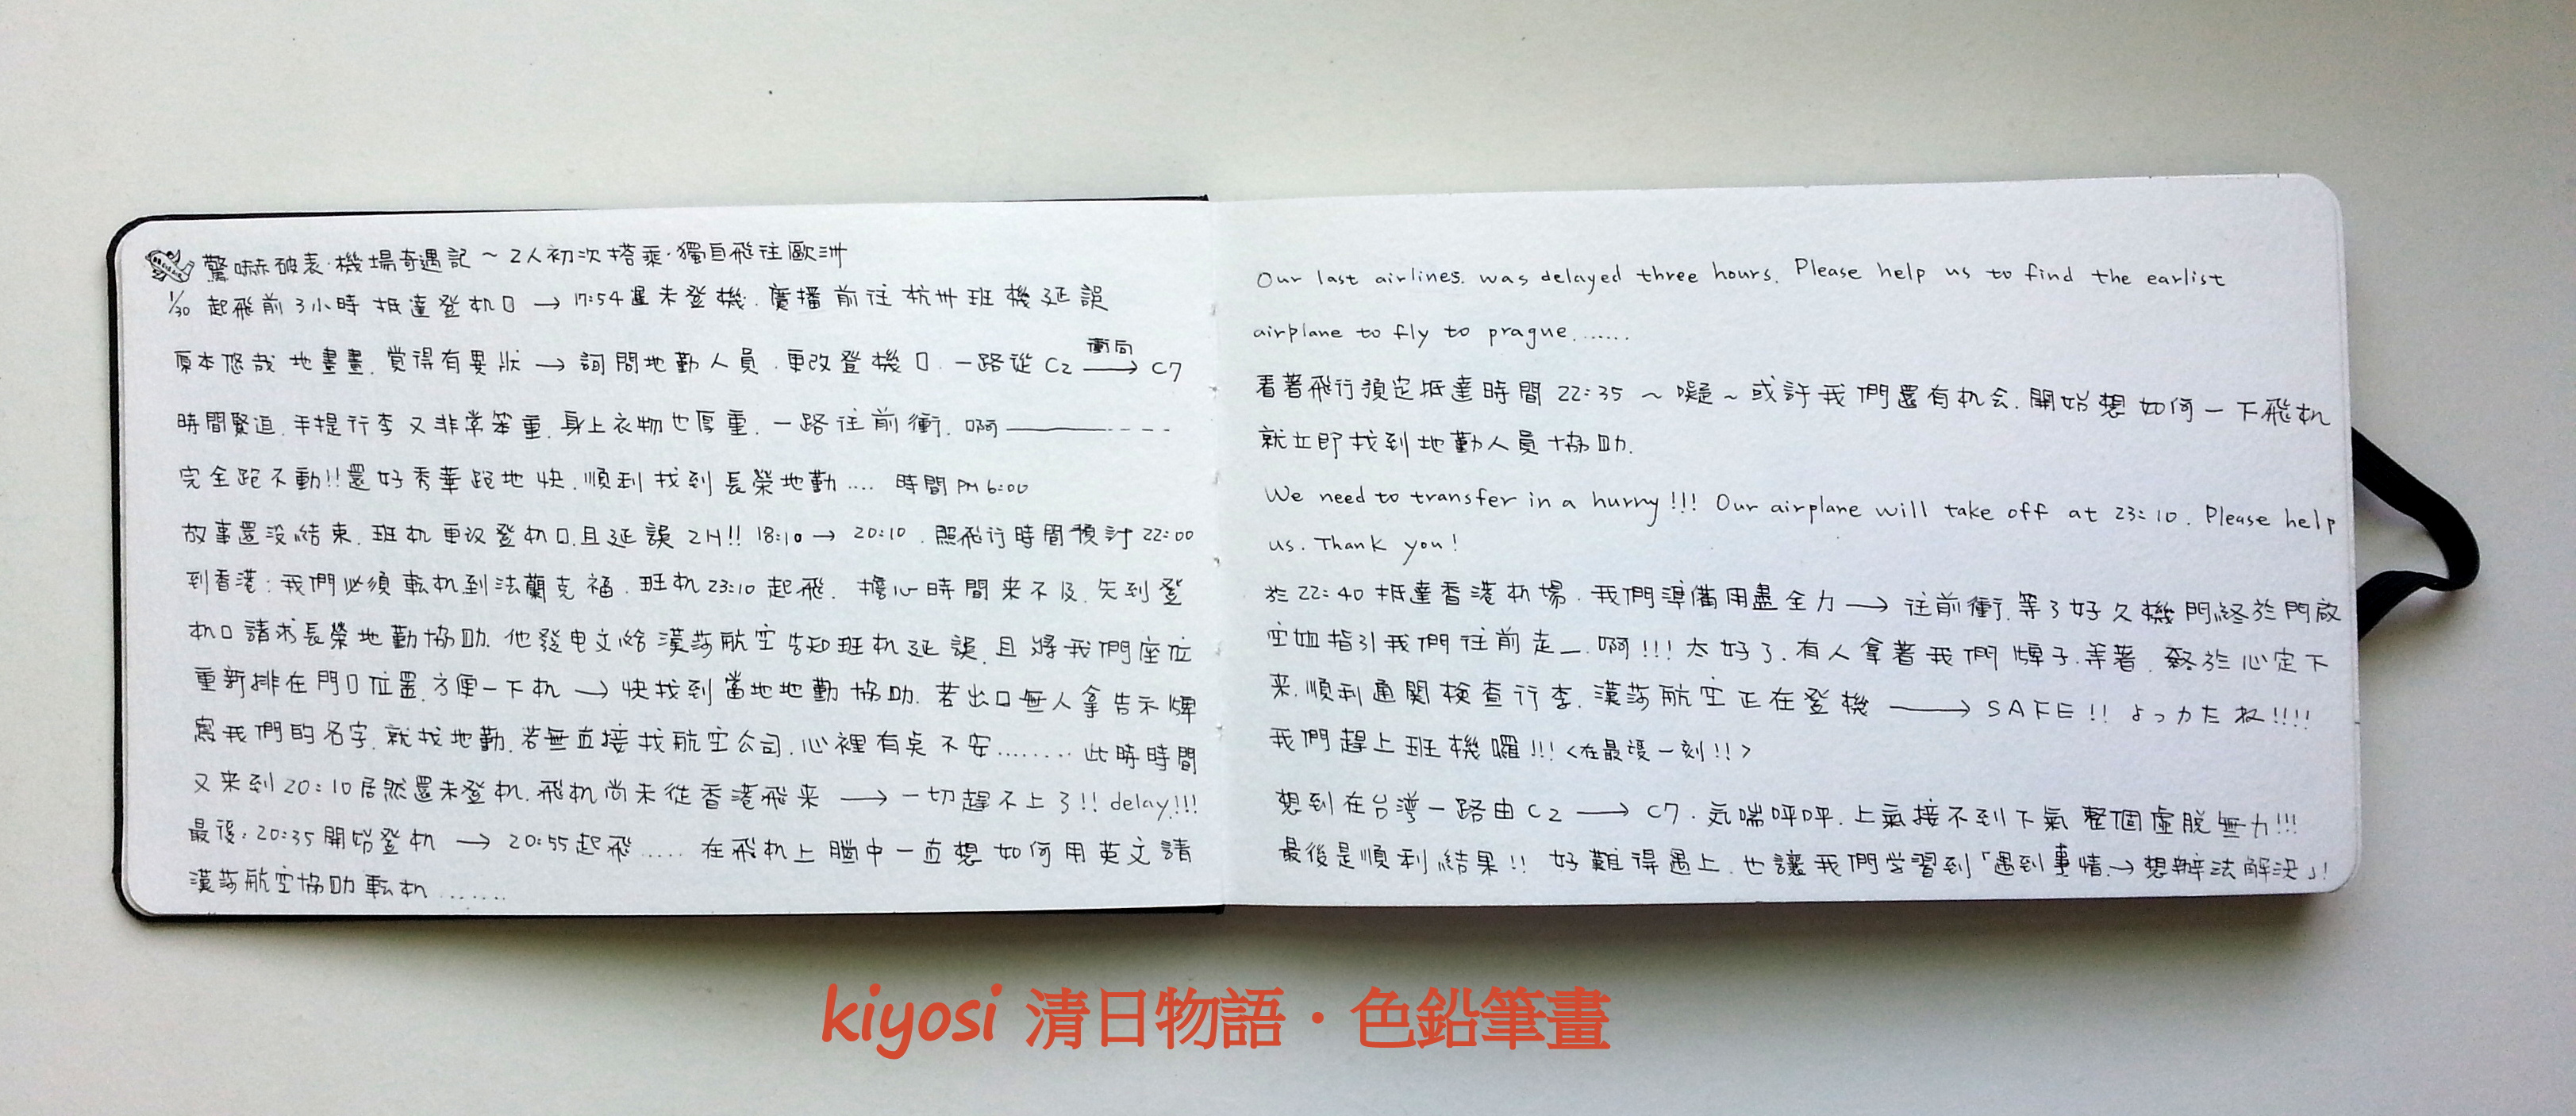 驚嚇破表·機場奇遇記～2人初次搭乘·獨自飛往歐洲
1/30 起飛前3小時抵達登机口→17:54還未登機.廣播前往杭州班機延誤
原本悠哉地畫畫.覚得有異狀→詢問地勤人員.更改登機口.一路從C2 衝向→ C7
時間緊迫.手提行李又非常笨重.身上衣物也厚重.一路往前衝.啊———---
完全跑不動!!還好秀華跑地快.順利找到長榮地勤.... 時間PM 6:00
故事還没結束.班机更改登机口.且延誤2H!! 18:10→ 20:10.照飛行時間預計22:00
到香港:我們必須転机到法蘭克福.班机23:10起飛.擔心時間来不及.先到登
机口請求長榮地勤協助.他發电文給漢莎航空告知班机延誤.且將我們座位
重新排在門口位置.方便一下机→快找到當地地勤協助.若出口無人拿告示牌
寫我們的名字.就找地勤.若無直接找航空公司.心裡有奌不安........此時時間
又来到20:10居然還未登机.飛机尚未從香港飛来→一切趕不上了!! delay!!!
最後:20:35開始登机→20:55起飛.....在飛机上腦中一直想如何用英文請
漢莎航空協助転机.......
Our last airlines. was delayed three hours. Please help us to find the earlist
airplane to fly to prague.......
看著飛行預定抵達時間22:35～嗯～或許我們還有机会.開始想如何一下飛机
就立即找到地勤人員協助.
We need to transfer in a hurry!!! Our airplane will take off at 23:10. Please help
us. Thank you!
於22:40抵達香港机場.我們準備用盡全力→往前衝.等了好久機門終於門啟
空姐指引我們往前走—.啊!!!太好了.有人拿著我們牌子.等著.終於心定下
来.順利通関檢查行李.漢莎航空正在登機→SAFE!! よっカたね!!!!
我們趕上班機囉!!!<在最後一刻!!>
想到在台湾一路由C2→C7.気喘呼呼.上氣接不到下氣整個虛脫無力!!!
最後是順利結果!!好難得遇上.也讓我們学習到「遇到事情→想辦法解決」!
kiyosi 清日物語·色鉛筆畫